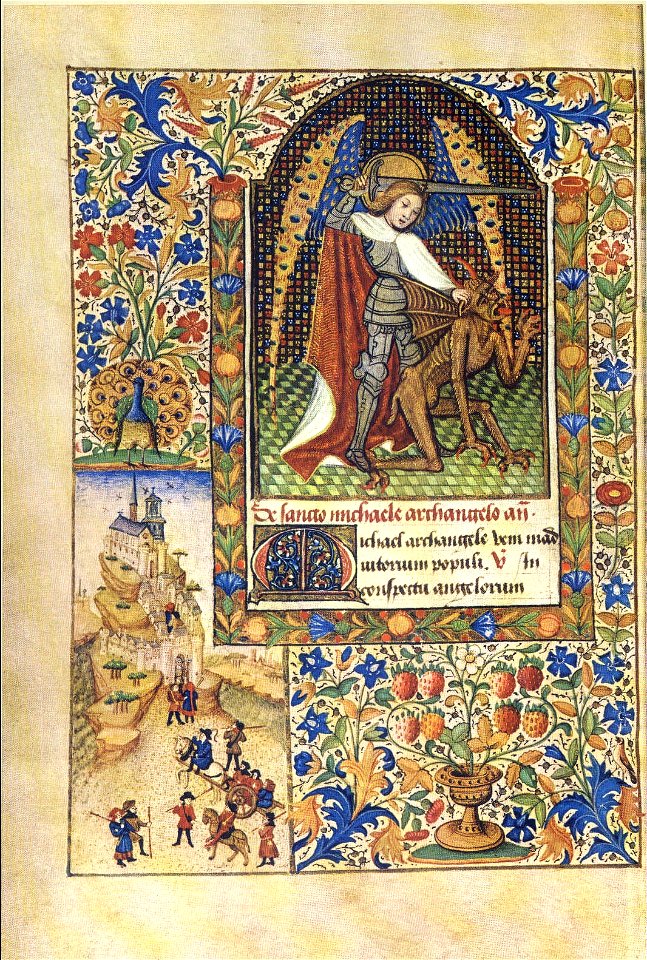 De sancto michaele archangelo añ.
Michael archangele veni in ad
iutorium populi. V̄ In
conspectu angelorum